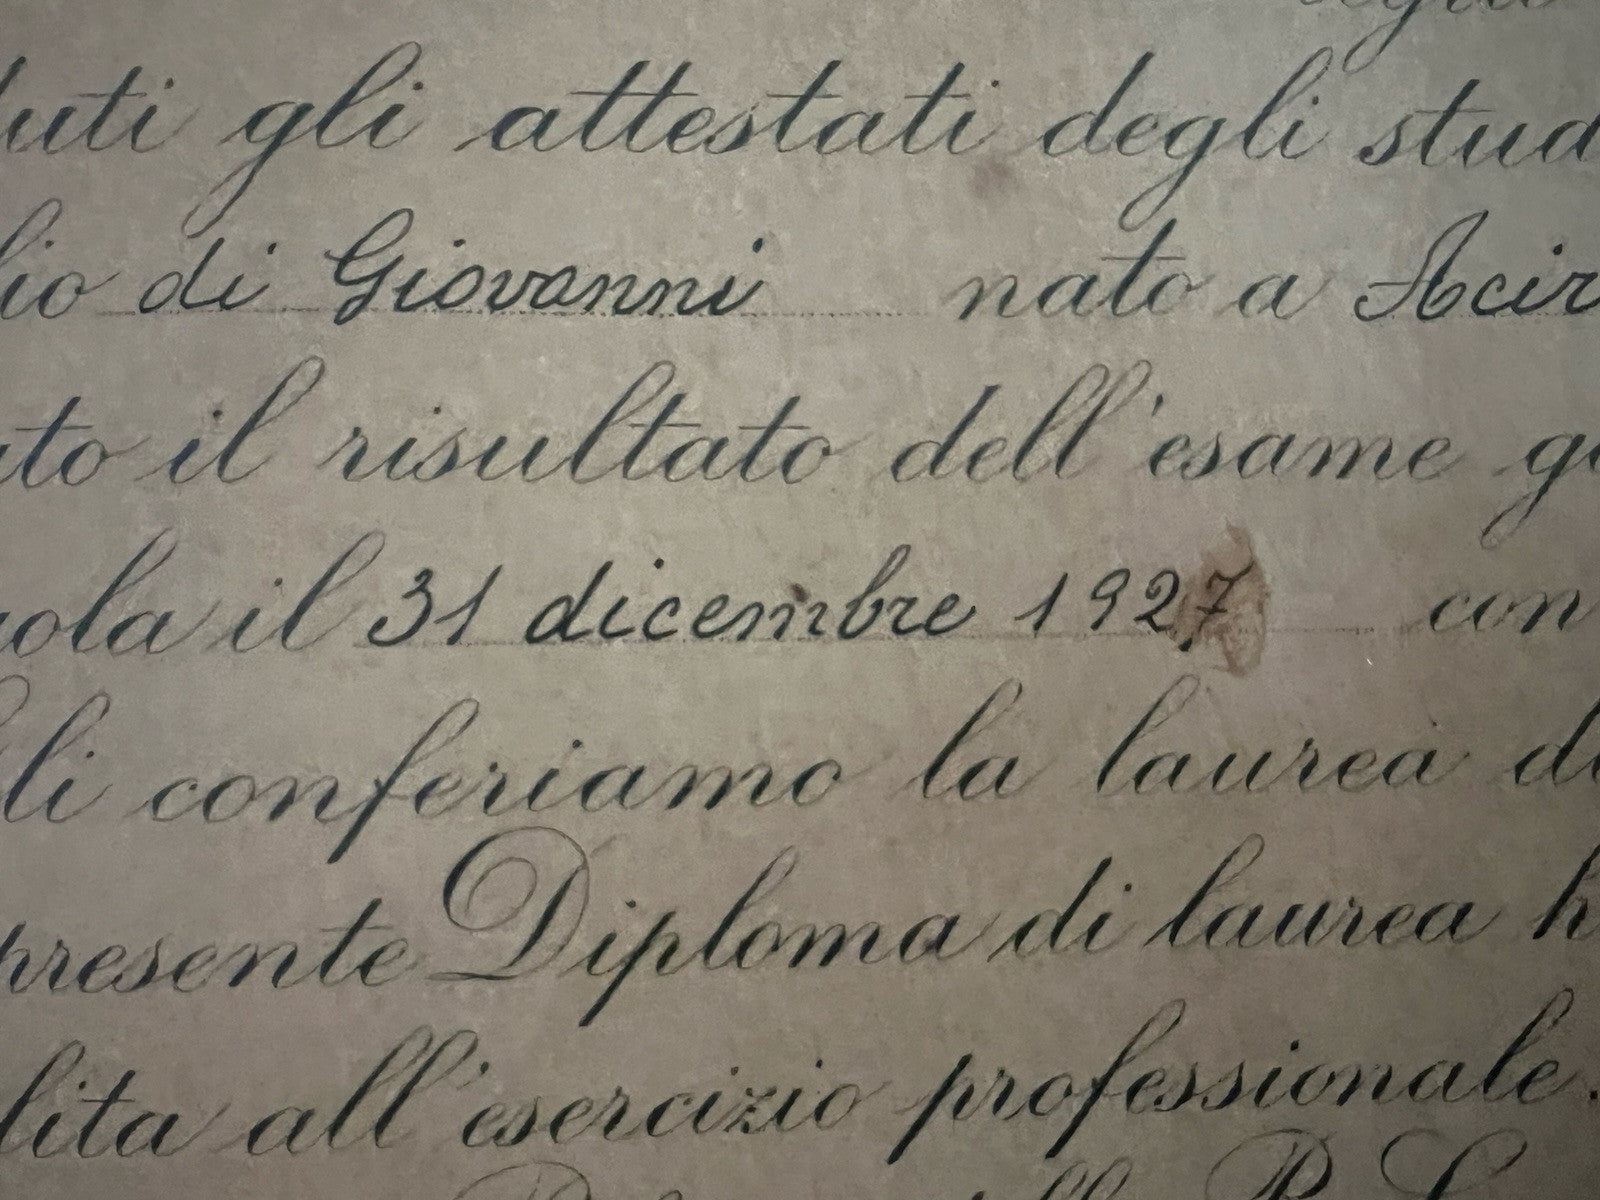 gli attestati degli
di Giovanni nato a
il risultato dell'esame
il 31 dicembre 1927 con
conferiamo la laurea
presente Diploma di laurea
all'esercizio professionale.